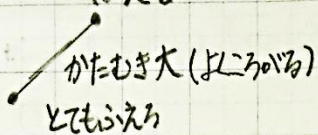 かたむき大(よくころがる)
とてもふえる